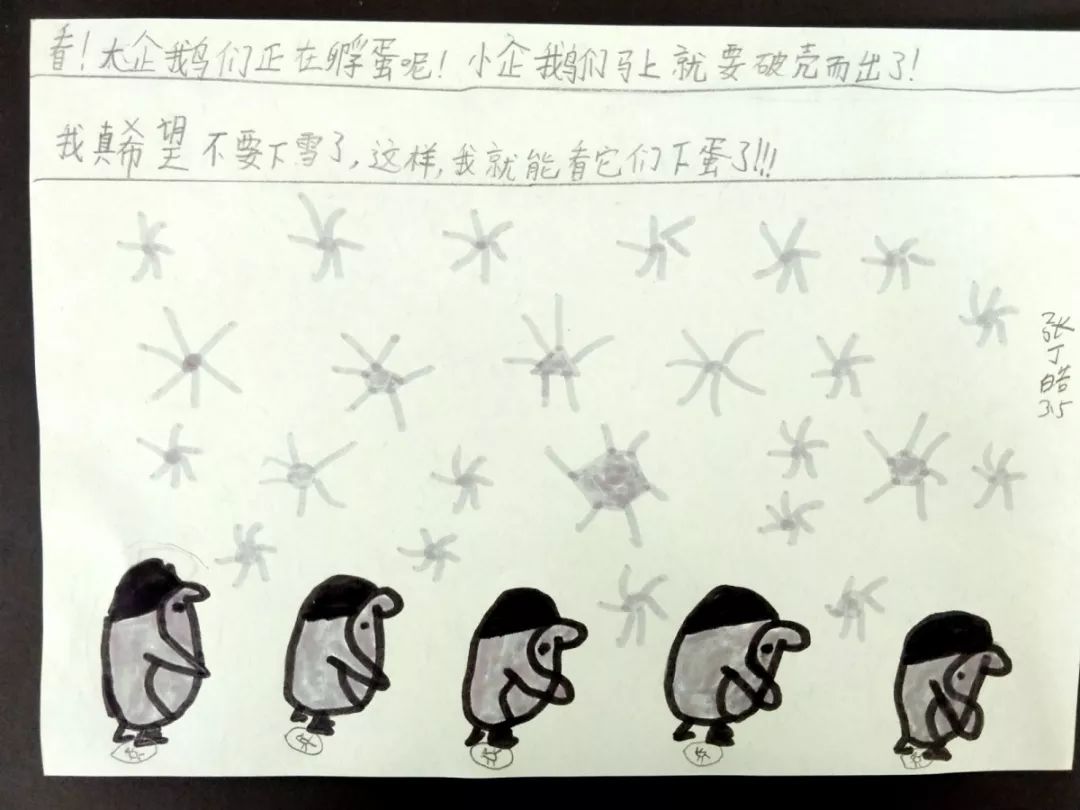 看！大企鹅们正在孵蛋呢！小企鹅们马上就要破壳而出了！
我真希望不要下雪了，这样，我就能看它们下蛋了!!!
张
丁
皓
3.5